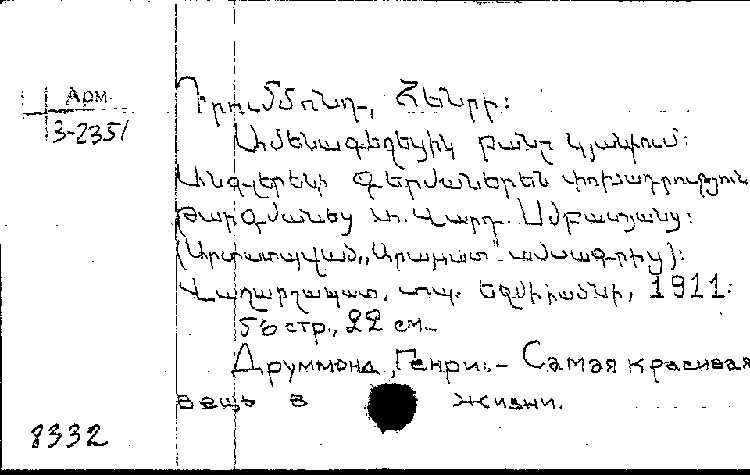 Арм.
3-2351
Դրումմոնդ, Հենրի:
Ամենագեղեցիկ բանը կյանքում:
Անգլերենի գերմաներեն փոխադրություն
թարգմանեց Ա. Վարդ. Սմբատյանց:
(Արտատպված „Արարատ" ամսագրից):
Վաղարշապատ, տպ. Էջմիածնի, 1911:
56 стр., 22 см.
Друммонд, Генри.- Самая красивая
вещь в жизни.
8332